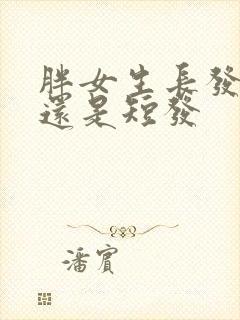 胖女生長發
還是短發
潘賓